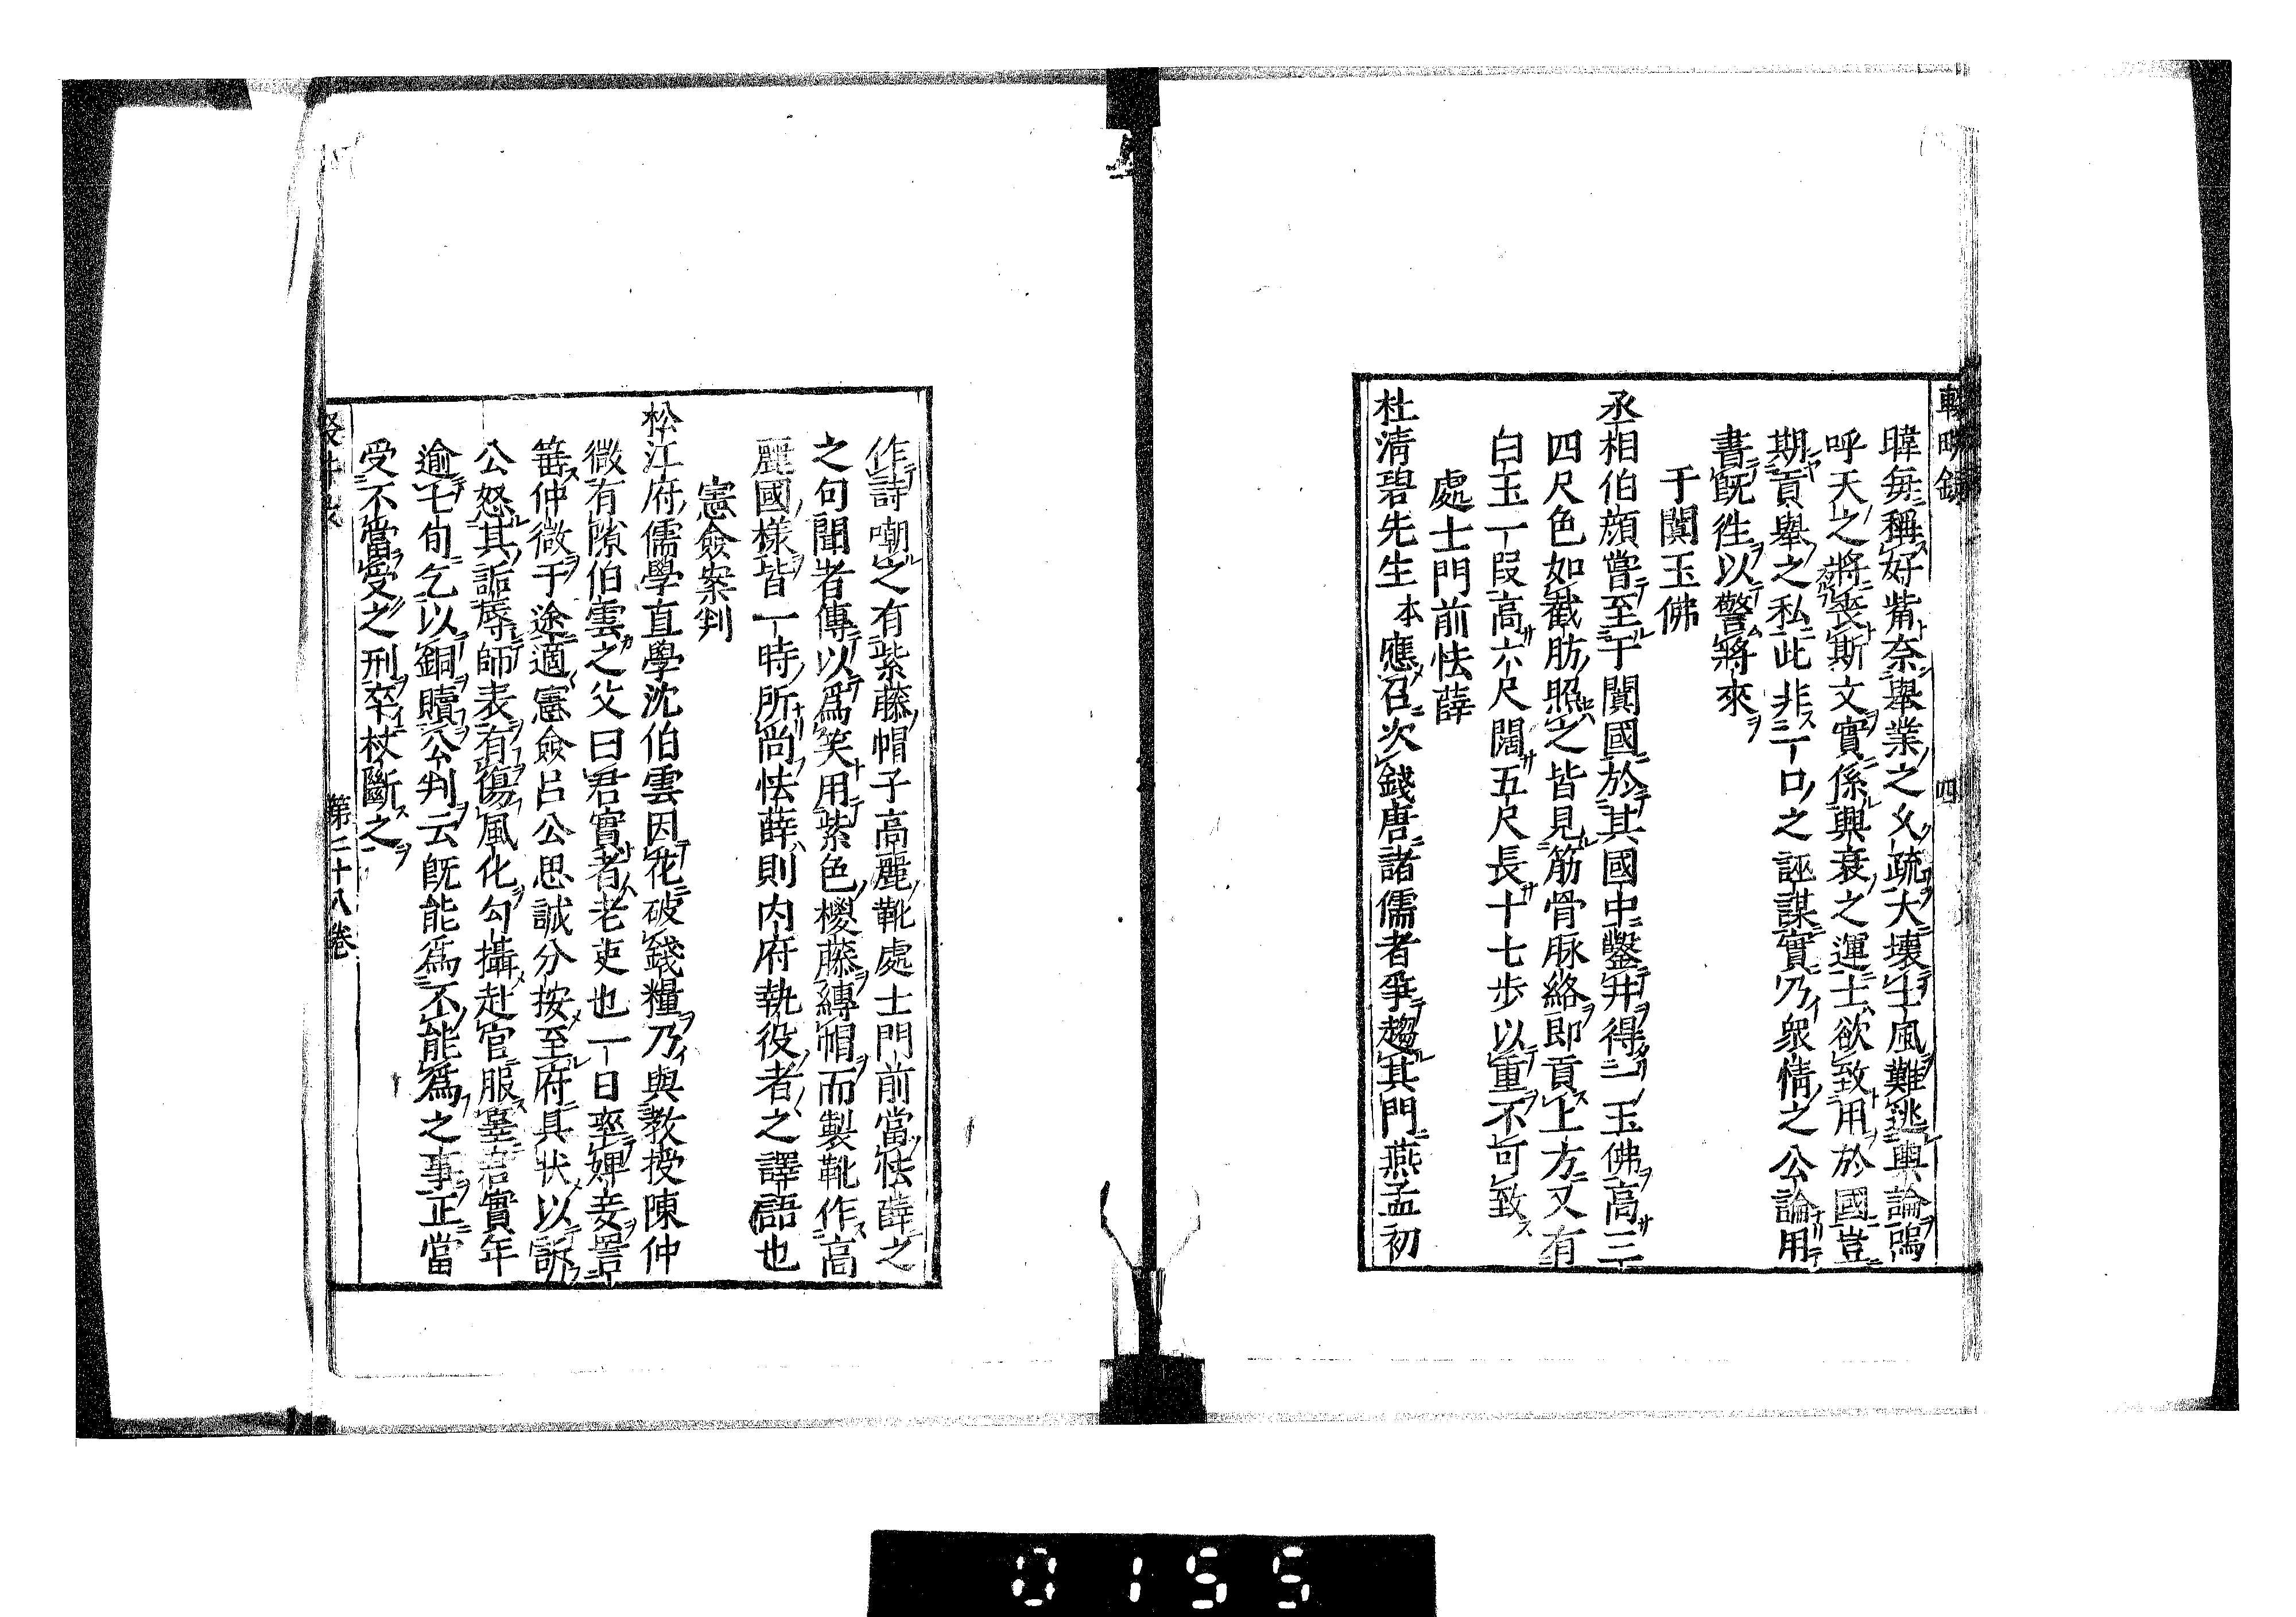 輟畊録 四
暐每稱好觜奈舉業之久疏大壞士風難逃輿論嗚
呼天之將喪斯文實係興衰之運士欲致用於國豈
期貢舉之私此非一口之誣謀實乃衆情之公論用
書既徃以警將來
于闐玉佛
丞相伯顔嘗至于闐國於其國中鑿井得一玉佛高三
四尺色如截肪照之皆見筋骨脉絡即貢上方又有
白玉一段高六尺闊五尺長十七步以重不可致
處士門前怯薛
杜淸碧先生本應召次錢唐諸儒者爭趨其門燕孟初
作詩嘲之有紫藤帽子高麗靴處士門前當怯薛之
之句聞者傳以爲笑用紫色椶藤縳帽而製靴作高
麗國樣皆一時所尚怯薛則内府執役者之譯語也
憲僉案判
松江府儒學直學沈伯雲因花破錢糧乃與教授陳仲
微有隙伯雲之父曰君實者老吏也一日率婢妾詈
箠仲微于途適憲僉呂公思誠分按至府具状以訴
公怒其詬辱師表有傷風化勾攝赴官服辜君實年
逾七旬乞以銅贖公判云旣能爲不能爲之事正當
受不當受之刑卒杖斷之
第二十八卷
0155